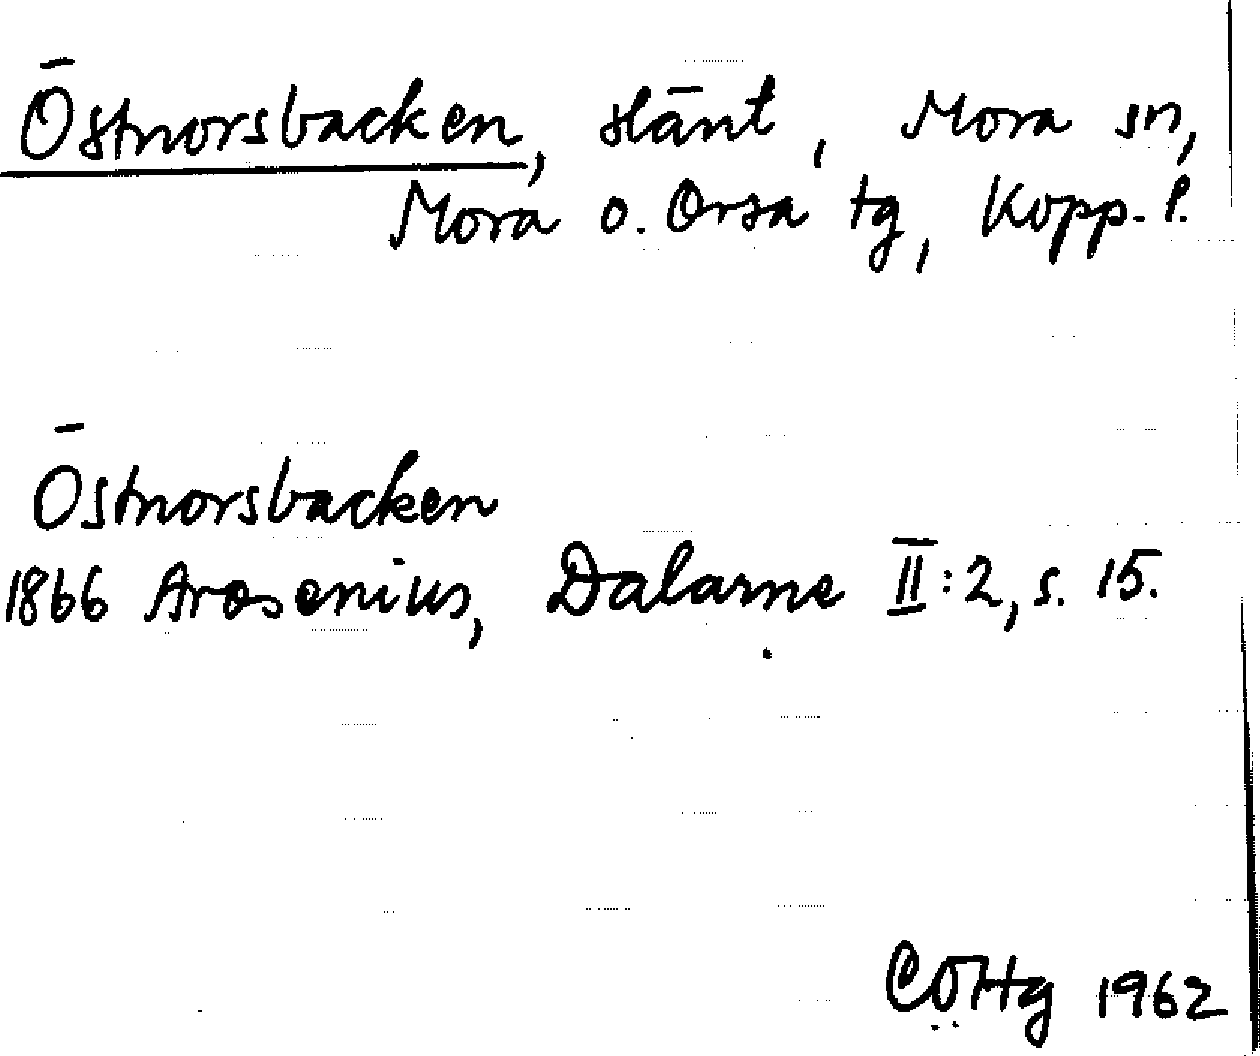 Östnorsbacken, slänt, Mora sn,
Mora o. Orsa tg, Kopp. l.
Östnorsbacken
1866 Arosenius, Dalarne II:2, s. 15.
CÖHg 1962